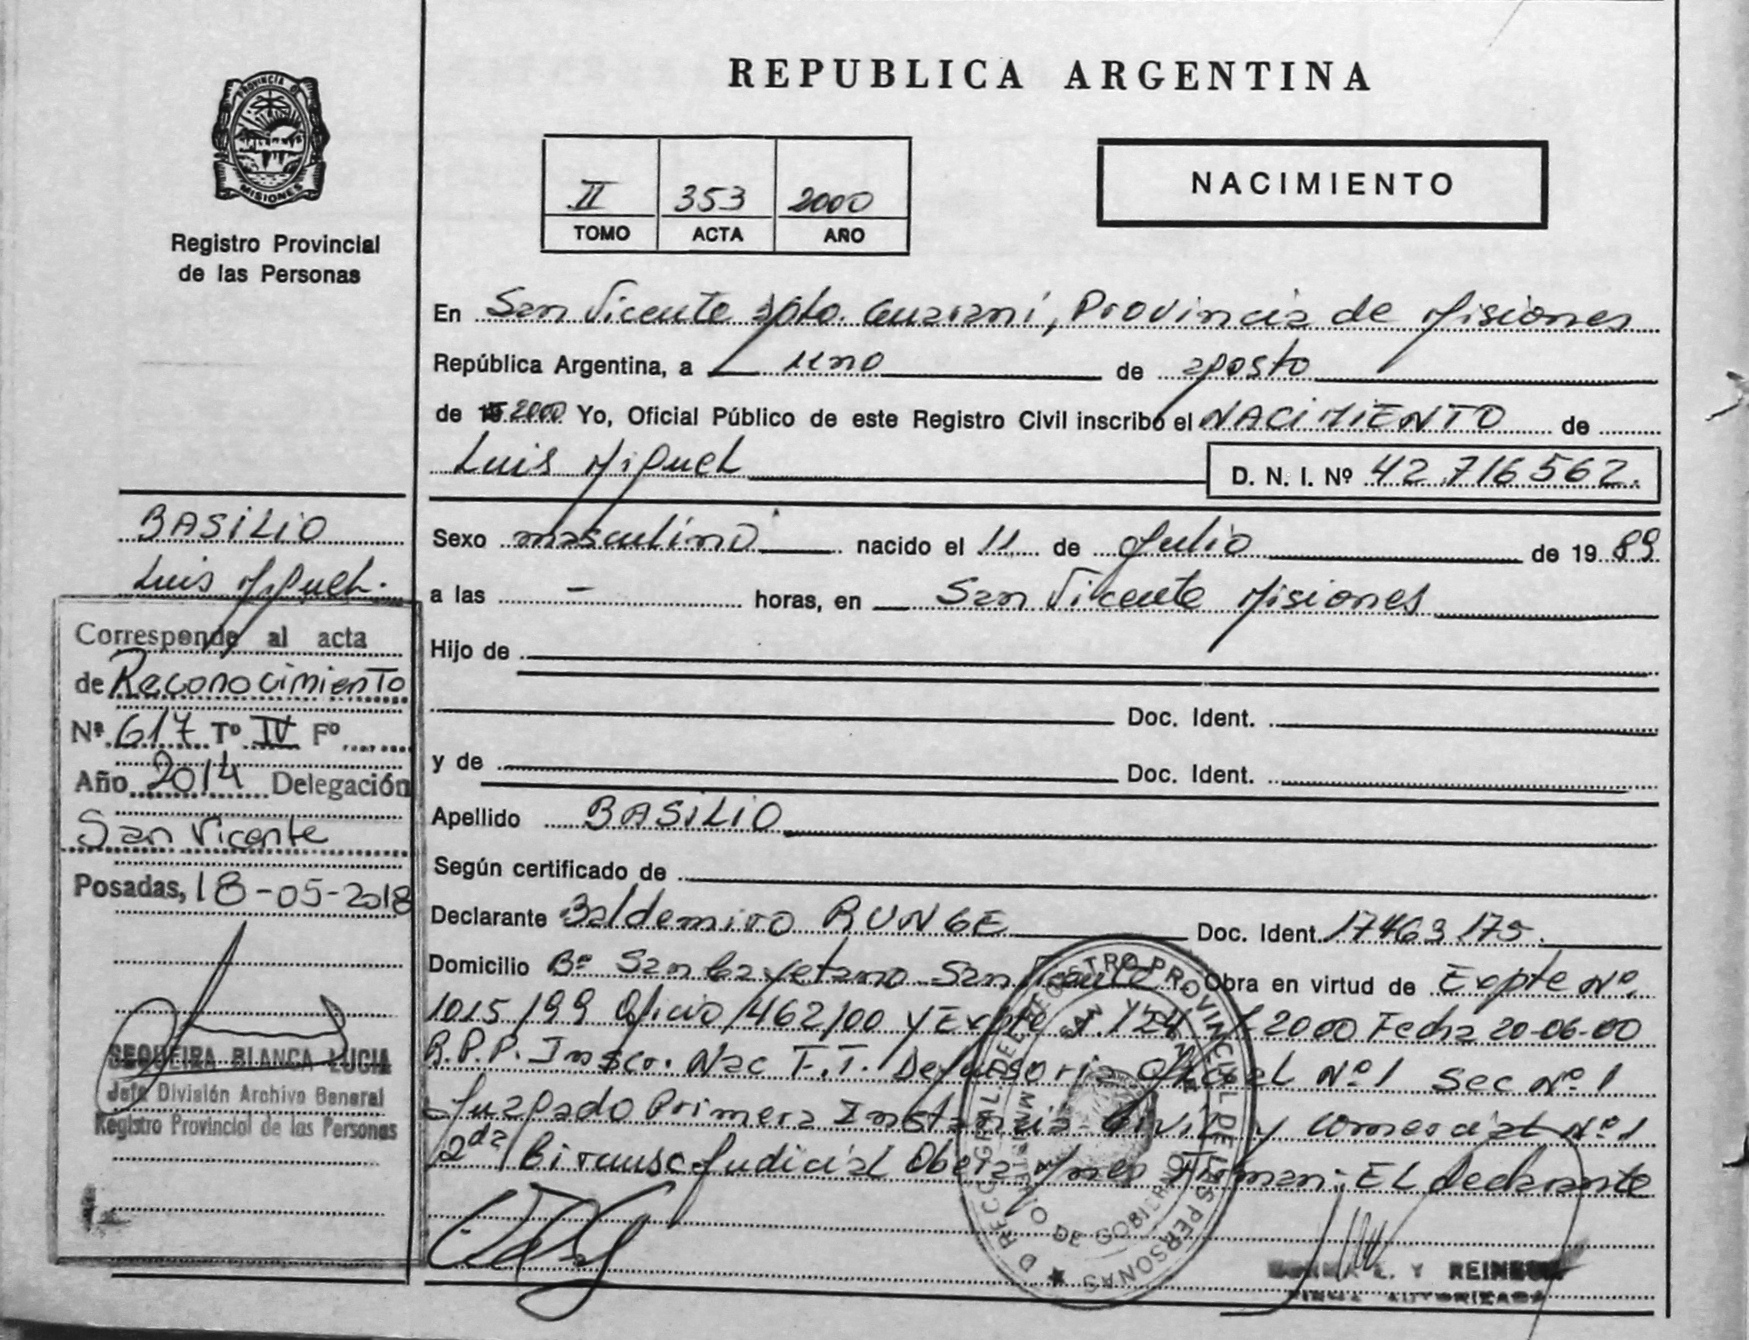 PROVINCIA DE
MISIONES
Registro Provincial
de las Personas
REPUBLICA ARGENTINA
II 353 2000
TOMO ACTA AÑO
NACIMIENTO
En San Vicente Dpto. Guaraní, Provincia de Misiones
República Argentina, a uno de agosto
de 2000 Yo, Oficial Público de este Registro Civil inscribo el NACIMIENTO de
Luis Miguel
D. N. I. Nº 42.716562.
Sexo masculino nacido el 11 de Julio de 19 89
a las - horas, en San Vicente Misiones
Hijo de
Doc. Ident.
y de Doc. Ident.
Apellido BASILIO
Según certificado de
Declarante Baldemiro RUNGE Doc. Ident. 17463175.
Domicilio Bº San Cayetano San Vicente Obra en virtud de Expte Nº.
1015/99 Oficio 1462/00 y Expte 2000 Fecha 20-06-00
R.P.P. Inscr. Nac F.T. Defensoria Oficial Nº 1 Sec Nº 1
Juzgado Primera Instancia Civil y Comercial Nº 1
2da Circunsc Judicial Oberá Mnes Firman: El declarante
BASILIO
Luis Miguel.
Corresponde al acta
de Reconocimiento
Nº 617 Tº IV Fº
Año 2014 Delegación
San Vicente
Posadas, 18-05-2018
SEQUEIRA BLANCA LUCIA
Jefe División Archivo General
Registro Provincial de las Personas
DIRECC. GRAL. DEL REGISTRO PROVINCIAL DE LAS PERSONAS
SAN VICENTE
MINISTERIO DE GOBIERNO
Y REINE
FIRMA AUTORIZADA